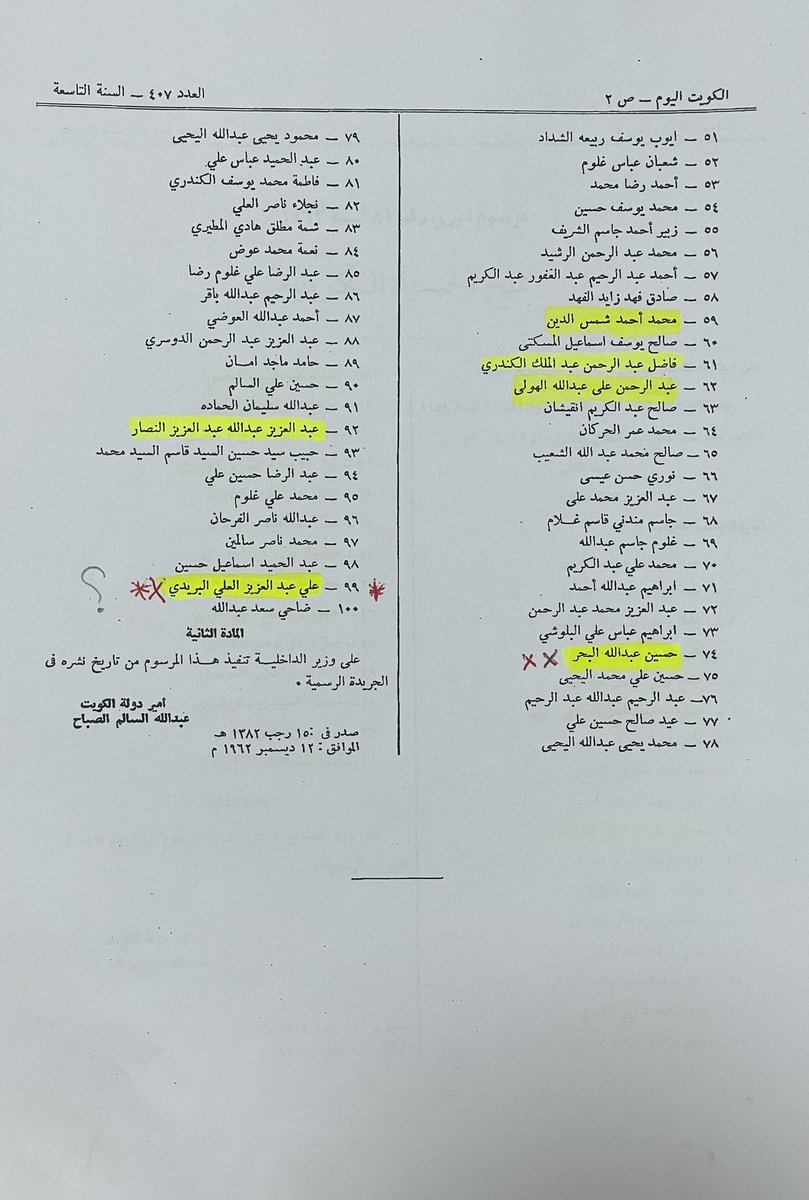 الكويت اليوم – ص ٢
العدد ٤٠٧ – السنة التاسعة
٥١ – ايوب يوسف ربيعه الشداد
٥٢ – شعبان عباس غلوم
٥٣ – أحمد رضا محمد
٥٤ – محمد يوسف حسين
٥٥ – زبير أحمد جاسم الشريف
٥٦ – محمد عبد الرحمن الرشيد
٥٧ – أحمد عبد الرحيم عبد الغفور عبد الكريم
٥٨ – صادق فهد زايد الفهد
٥٩ – محمد أحمد شمس الدين
٦٠ – صالح يوسف اسماعيل المسكتى
٦١ – فاضل عبد الرحمن عبد الملك الكندري
٦٢ – عبد الرحمن على عبدالله الهولى
٦٣ – صالح عبد الكريم انقيشان
٦٤ – محمد عمر الحركان
٦٥ – صالح محمد عبد الله الشعيب
٦٦ – نوري حسن عيسى
٦٧ – عبد العزيز محمد على
٦٨ – جاسم مندني قاسم غلام
٦٩ – غلوم جاسم عبدالله
٧٠ – محمد علي عبد الكريم
٧١ – ابراهيم عبدالله أحمد
٧٢ – عبد العزيز محمد عبد الرحمن
٧٣ – ابراهيم عباس علي البلوشي
٧٤ – حسين عبدالله البحر
٧٥ – حسين علي محمد اليحيى
٧٦ – عبد الرحيم عبدالله عبد الرحيم
٧٧ – عيد صالح حسين علي
٧٨ – محمد يحيى عبدالله اليحيى
٧٩ – محمود يحيى عبدالله اليحيى
٨٠ – عبد الحميد عباس علي
٨١ – فاطمة محمد يوسف الكندري
٨٢ – نجلاء ناصر العلي
٨٣ – شمة مطلق هادي المطيري
٨٤ – نعمة محمد عوض
٨٥ – عبد الرضا علي غلوم رضا
٨٦ – عبد الرحيم عبدالله باقر
٨٧ – أحمد عبدالله العوضي
٨٨ – عبد العزيز عبد الرحمن الدوسري
٨٩ – حامد ماجد امان
٩٠ – حسين علي السالم
٩١ – عبدالله سليمان الحماده
٩٢ – عبد العزيز عبدالله عبد العزيز النصار
٩٣ – حبيب سيد حسين السيد قاسم السيد محمد
٩٤ – عبد الرضا حسين علي
٩٥ – محمد علي غلوم
٩٦ – عبدالله ناصر الفرحان
٩٧ – محمد ناصر سالمين
٩٨ – عبد الحميد اسماعيل حسين
٩٩ – علي عبد العزيز العلي البريدي
١٠٠ – ضاحي سعد عبدالله
المادة الثانية
على وزير الداخلية تنفيذ هذا المرسوم من تاريخ نشره فى
الجريدة الرسمية •
أمير دولة الكويت
عبدالله السالم الصباح
صدر فى : ١٥ رجب ١٣٨٢ هـ
الموافق : ١٢ ديسمبر ١٩٦٢ م